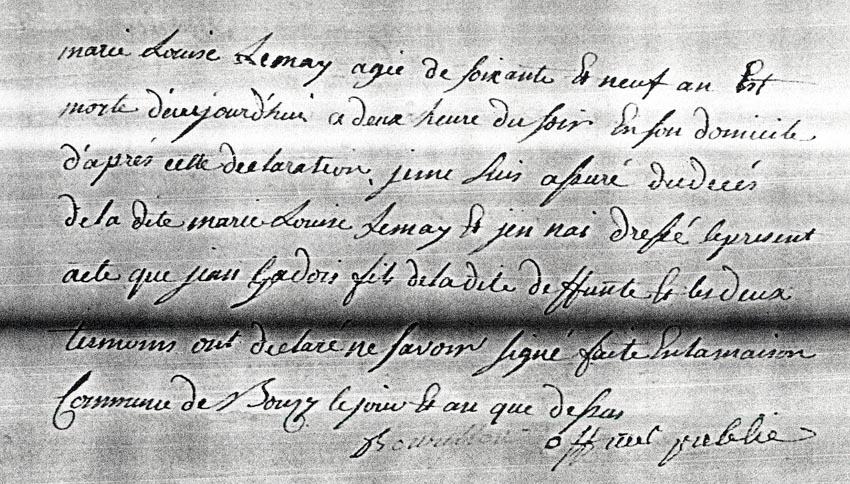 marie Louise Lemay agée de soixante et neuf an Est
morte d'éuejourd'hui a deux heure du soir En son domicile
d'aprés cette declaration, jeme suis assuré dudecés
dela dite marie Louise Lemay et jen nai dressé lepresent
acte que jean Gadois fils deladite deffunte et les deux
temoins ont declaré ne savoir signé faite Enlamaison
Commune de Bouzy lejour et an que dessus
officiel publie